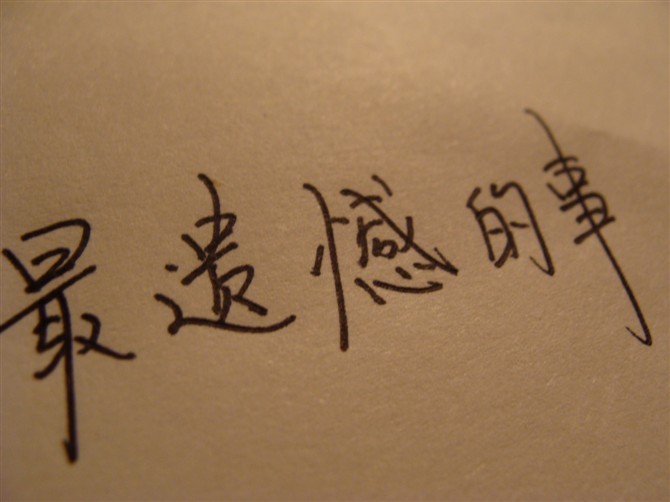 最遗憾的事